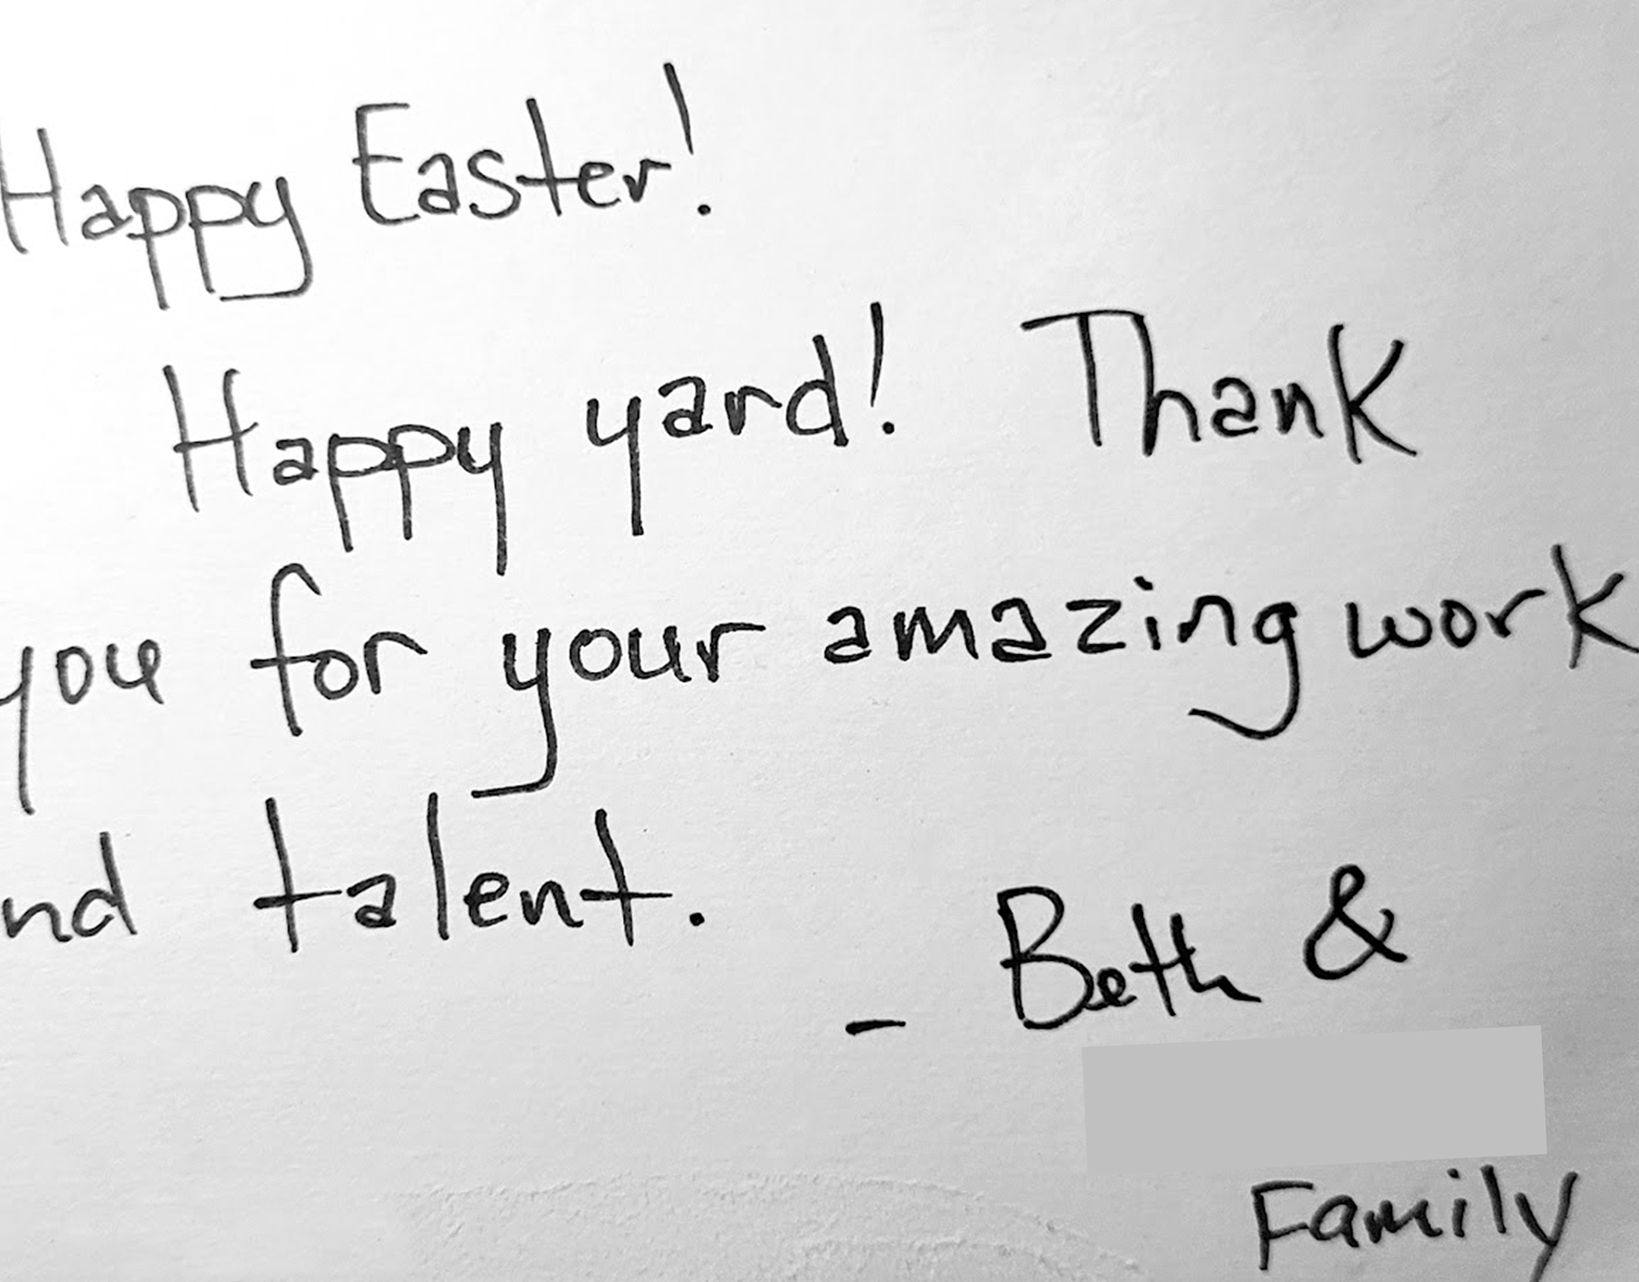 Happy Easter!
Happy yard! Thank
you for your amazing work
nd talent.
- Beth &
Family